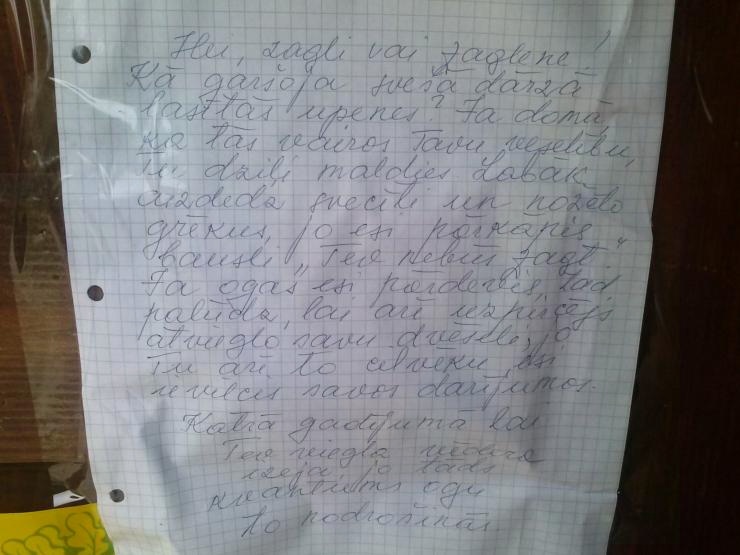 Hei, zagli vai zaglene!
Kā garšoja svešā dārzā
lasītās upenes? Ja domā,
ka tās vairos Tavu veselību,
Tu dziļi maldies. Labāk
aizdedz svecīti un nožēlo
grēkus, jo esi pārkāpis
bausli „Tev nebūs zagt“.
Ja ogas esi pārdevis, tad
palūdz, lai arī uzpircējs
atvieglo savu dvēseli, jo
Tu arī to cilvēku esi
ievilcis savos darījumos.
Katrā gadījumā lai
Tev viegla vēdera
izeja, jo tāds
kvantums ogu
to nodrošinās.